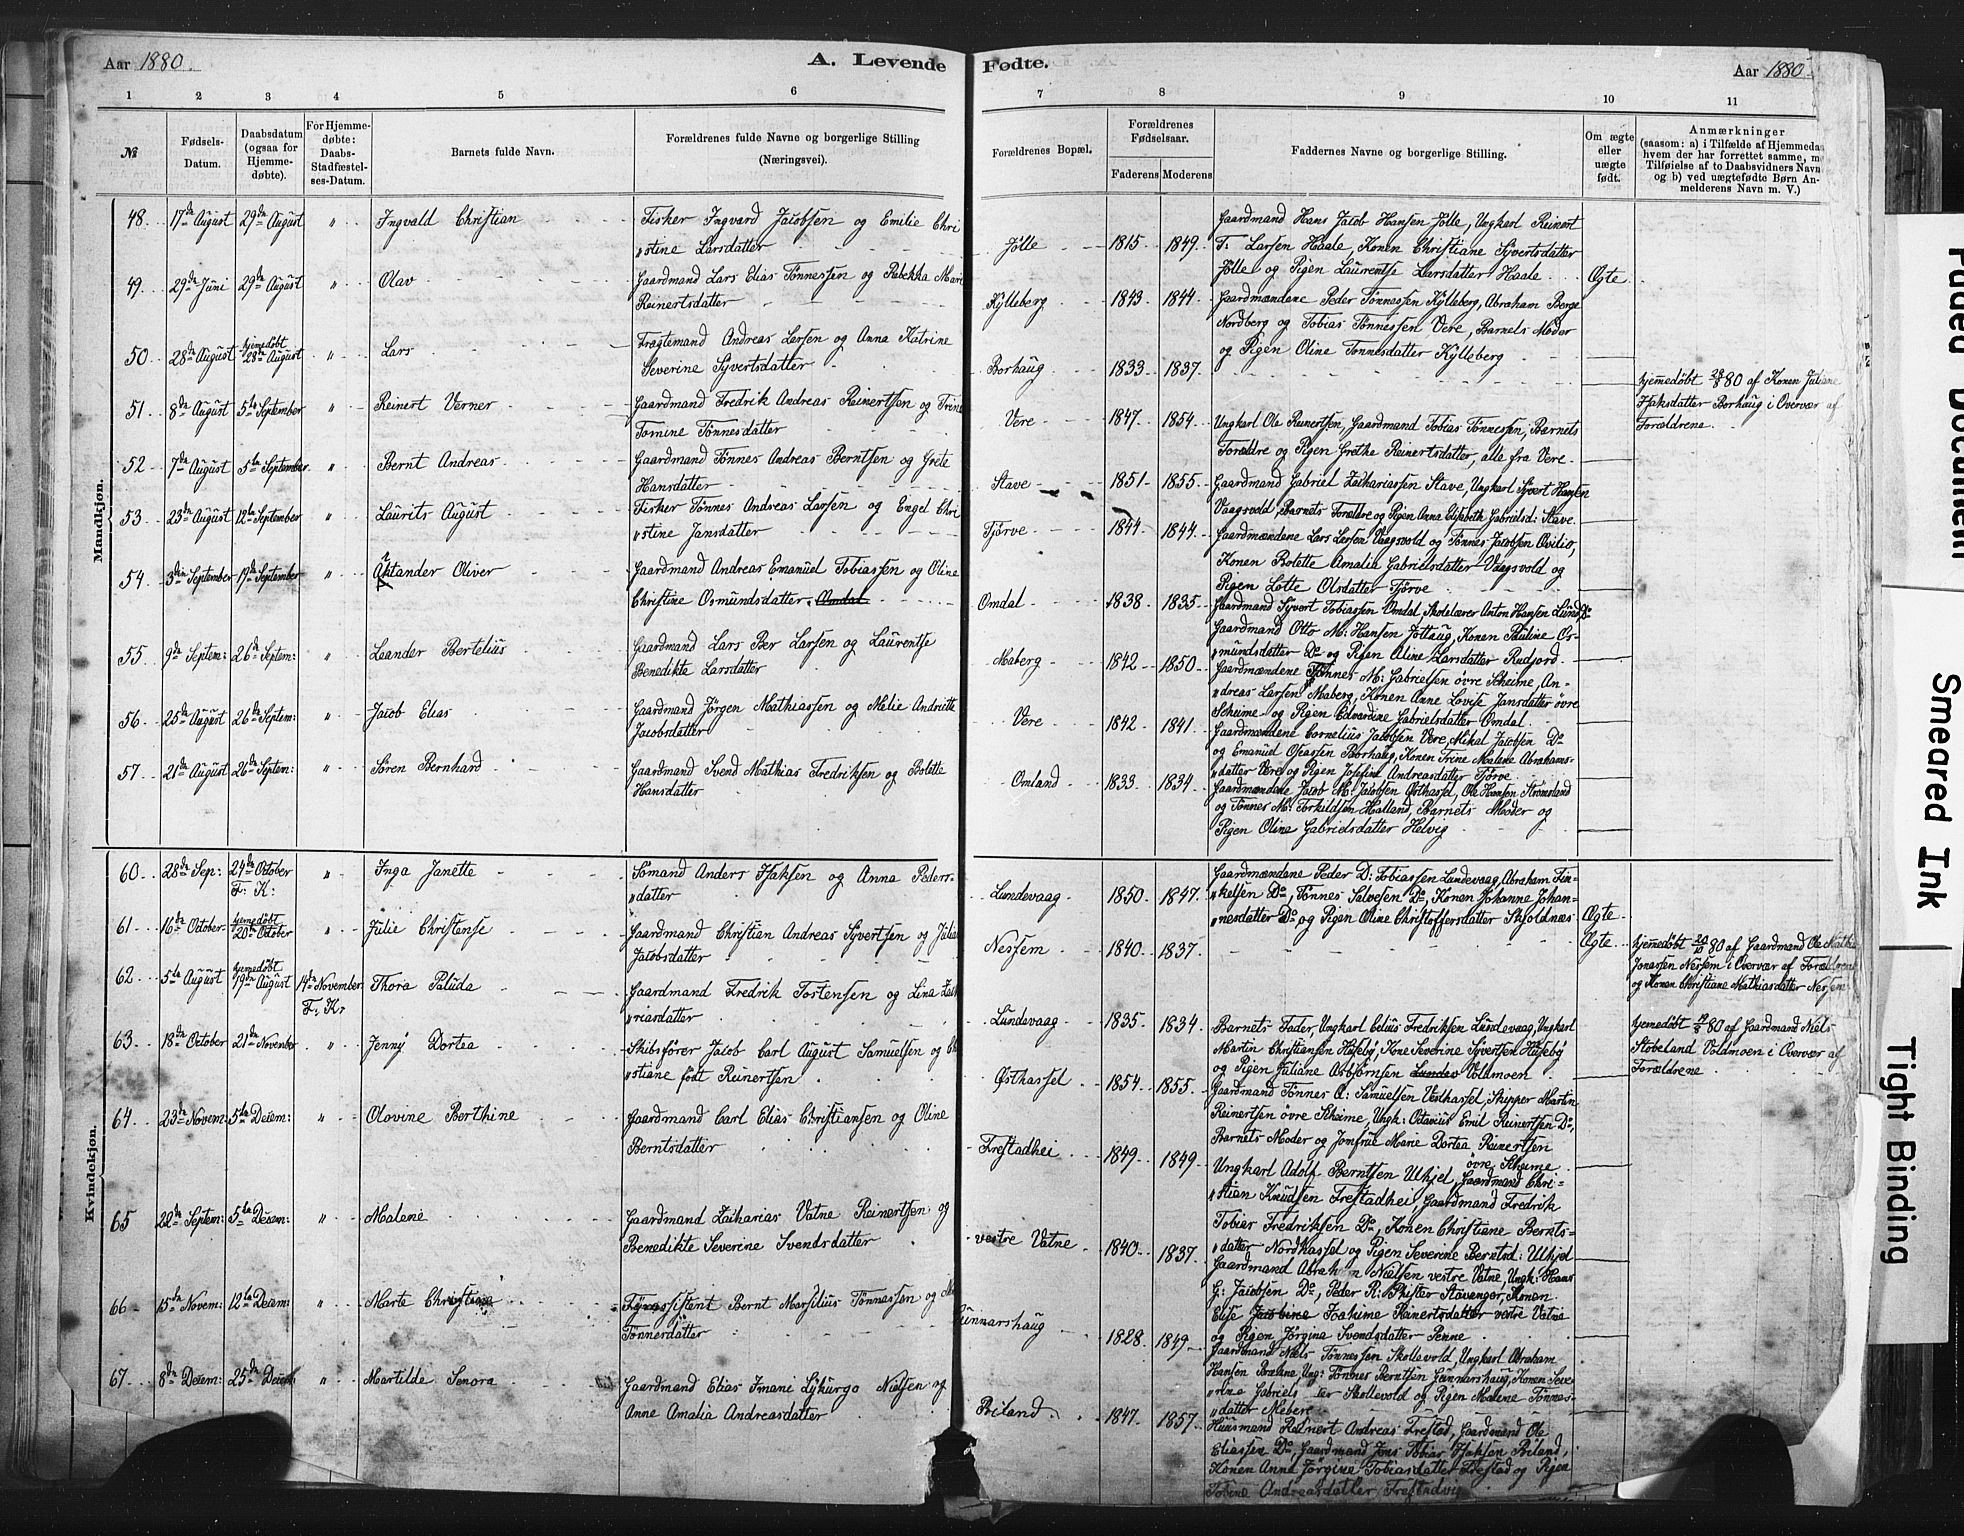 Aar 1880.
A. Levende
Fødte.
Aar 1880
1 2 3 4 5 6 7 8 9 10 11
№
Fødsels-Datum.
Daabsdatum (ogsaa for Hjemme-døbte).
For Hjemme-døbte: Daabs-Stadfæstel-ses-Datum.
Barnets fulde Navn.
Forældrenes fulde Navne og borgerlige Stilling (Næringsvei).
Forældrenes Bopæl.
Forældrenes Fødselsaar.
Faderens Moderens
Faddernes Navne og borgerlige Stilling.
Om ægte eller uægte født.
Anmærkninger
(saasom: a) i Tilfælde af Hjemmedaa
hvem der har forrettet samme, m
Tilføielse af to Daabsvidners Navn
og b) ved uægtefødte Børn An-
melderens Navn m. V.)
Mandkjøn.
48. 17de August 29de August " Ingvald Christian Fisker Ingvard Jacobsen og Emilie Chri
"stine Larsdatter Jölle 1815 1849
Gaardmand Hans Jacob Hansen Jölle, Ungkarl Reinert
T. Larsen Haale, Konen Christiane Syvertsdatter
Jölle og Pigen Laurentse Larsdatter Haale Ægte
49. 29de Juni 29de August " Olav Gaardmand Lars Elias Tönnessen og Rebekka Mari
Reinertsdatter Kylleberg 1843 1844
Gaardmændene Peder Tönnessen Kylleberg, Abraham Berge
Nordberg og Tobias Tönnessen Vere, Barnets Moder
og Pigen Oline Tonnesdatter Kylleberg
50 28de August hjemedöbt 28de August " Lars Fragtemand Andreas Larsen og Anna Katrine
Severine Syvertsdatter Borhaug 1833 1837
hjemedöbt 28/8 80 af Konen Juliane
Isaksdatter Borhaug i Overvær af
Forældrene
51 8de August 5te September " Reinert Verner Gaardmand Fredrik Andreas Reinertsen og Trine
Tomine Tönnesdatter Vere 1847 1854
Ungkarl Ole Reinertsen, Gaardmand Tobias Tönnessen, Barnets
Forældre og Pigen Grethe Reinertsdatter, alle fra Vere
52 7de August 5te September " Bernt Andreas Gaardmand Tönnes Andreas Berntsen og Grete
Hansdatter Stave 1851 1855
Gaardmand Gabriel Zachariassen Stave, Ungkarl Syvert Hansen
Vaagsvold, Barnets Forældre og Pigen Anna Elisabeth Gabrielsd: Stave
53 23de August 12te September " Laurits August Fisker Tönnes Andreas Larsen og Engel Chri
"stine Jansdatter Tjörve 1844 1844
Gaardmændene Lars Larsen Vaagsvold og Tönnes Jacobsen Qvilio,
Konen Bolette Amalia Gabrielsdatter Vaagsvold og
Pigen Lotte Olsdatter Tjörve
54 3die September 19de September " Oliver Gaardmand Andreas Emanuel Tobiassen og Oline
Christine Osmundsdatter Omdal Omdal 1838 1835
Gaardmand Syvert Tobiassen Omdal, Skolelærer Anton Hansen Lunde
Gaardmand Otto M: Hansen Jöllaug, Konen Pauline Os-
"mundsdatter Do og Pigen Aline Larsdatter Rudjord
55 9de Septem: 26de Septem: " Leander Bertelius Gaardmand Lars Ber Larsen og Laurentse
Benedikte Larsdatter Maberg 1842 1850
Gaardmændene Tönnes M: Gabrielsen övre Scheime, An-
"dreas Larsen Maberg, Konen Anne Lovise Jansdatter övre
Scheime og Pigen Edvardine Gabrielsdatter Omdal
56 25de August 26de Septem: " Jacob Elias Gaardmand Jörgen Mathiassen og Malie Andriette
Jacobsdatter Vere 1842 1841
Gaardmændene Cornelius Jacobsen Vere, Mikal Jacobsen Do
og Emanuel Oseassen Borhaug, Konen Trine Malene Abrahams-
"datter Vere og Pigen Josefine Andreasdatter Tjörve
57 21de August 26de Septem: " Sören Bernhard Gaardmand Svend Mathias Fredriksen og Bolette
Hansdatter Omland 1833 1834
Gaardmændene Jacob M: Jacobsen Östhassel, Ole Hansen Strömsland
og Tönnes M: Torkildsen Halland, Barnets Moder og
Pigen Oline Gabrielsdatter Helvig
Kvindekjøn.
60 28de Sep: 24de October F: K: " Inga Janette Sömand Anders Isaksen og Anna Peders-
"datter Lundevaag 1850 1847
Gaardmændene Peder D: Tobiassen Lundevaag, Abraham Fin-
"kelsen Do, Tönnes Salvesen Do, Konen Johanne Johan-
"nesdatter Do, og Pigen Oline Christoffersdatter Skjoldnæs Ægte
61 16de October hjemedöbt 20de October " Julie Christense Gaardmand Christian Andreas Syvertsen og Julian
Jacobsdatter Nessem 1840 1837 Ægte
hjemedöbt 20/10 80 af Gaardmand Ole Mathias
Jonassen Nessem i Overvær af Forældrene
og Konen Christiane Mathiasdatter Nessem
62 5te August hjemedöbt 19de August 14de November F: K: Thora Paluda Gaardmand Fredrik Tostensen og Lina Zach
"riasdatter Lundevaag 1835 1834
Barnets Fader, Ungkarl Celius Fredriksen Lundevaag, Ungkarl
Martin Christiansen Huseby, Kone Severine Syvertsen Huseby
og Pigen Juliane Asbjörnsen Lundev Voldmoen
hjemedöbt 19/8 80 af Gaardmand Niels
Stöbeland Voldmoen i Overvær af
Forældrene
63 18de October 21de November " Jenny Dortea Skibsförer Jacob Carl August Samuelsen og Ch
"stiane födt Reinertsen Östhassel 1854 1855
Gaardmand Tönnes O: Samuelsen Vesthassel, Skipper Martin
Reinertsen övre Scheime, Ungk: Octavius Emil Reinertsen Do,
Barnets Moder og Jomfrue Marie Dortea Reinertsen
övre Scheime
64 23de Novem: 5te Decem: " Olovine Berthine Gaardmand Carl Elias Christiansen og Oline
Berntsdatter Frestadhei 1849 1849
Ungkarl Adolf Berntsen Ulhjel, Gaardmand Chri-
"stian Knudsen Frestadhei, Gaardmand Fredrik
Tobias Fredriksen Do, Konen Christiane Bernts-
"datter Nordhassel og Pigen Severine Berntsd: Ulhjel
65 22de Septem: 5te Decem: " Malene Gaardmand Zacharias Vatne Reinertsen og
Benedikte Severine Svendsdatter vestre Vatne 1840 1837
Gaardmand Abraham Nielsen vestre Vatne, Ungk: Hans
G: Jacobsen Do, Peder R: Phister Stavanger, Konen
Elise Jacobine Joakime Reinertsdatter vestre Vatne
og Pigen Jörgine Svendsdatter Penne
66 15de Novem: 12te Decem: " Marte Christine Fyrassistent Bernt Marsilius Tönnessen og
Tönnesdatter Gunnarshaug 1828 1849
Gaardmand Niels Tönnessen Skollevold, Ungkarl Abraham
Hansen Brelane, Ung: Tönnes Berntsen Gunnarshaug, Konen Seve-
"rine Gabriels ter Skollevold og Pigen Malene Tönnes-
"datter Meberg
67 8de Decem: 25de Decem " Martilde Senora Gaardmand Elias Imani Lykurgo Nielsen og
Anne Amalia Andreasdatter Briland 1847 1857
Huusmand Reinert Andreas Frestad, Gaardmand Ole
Eliassen Do, Gaardmand Jens Tobias Isaksen Briland,
Konen Anne Jörgine Tobiasdatter Frestad og Pigen
Tobine Andreasdatter Frestadvig
Faded Document
Smeared Ink
Tight Binding